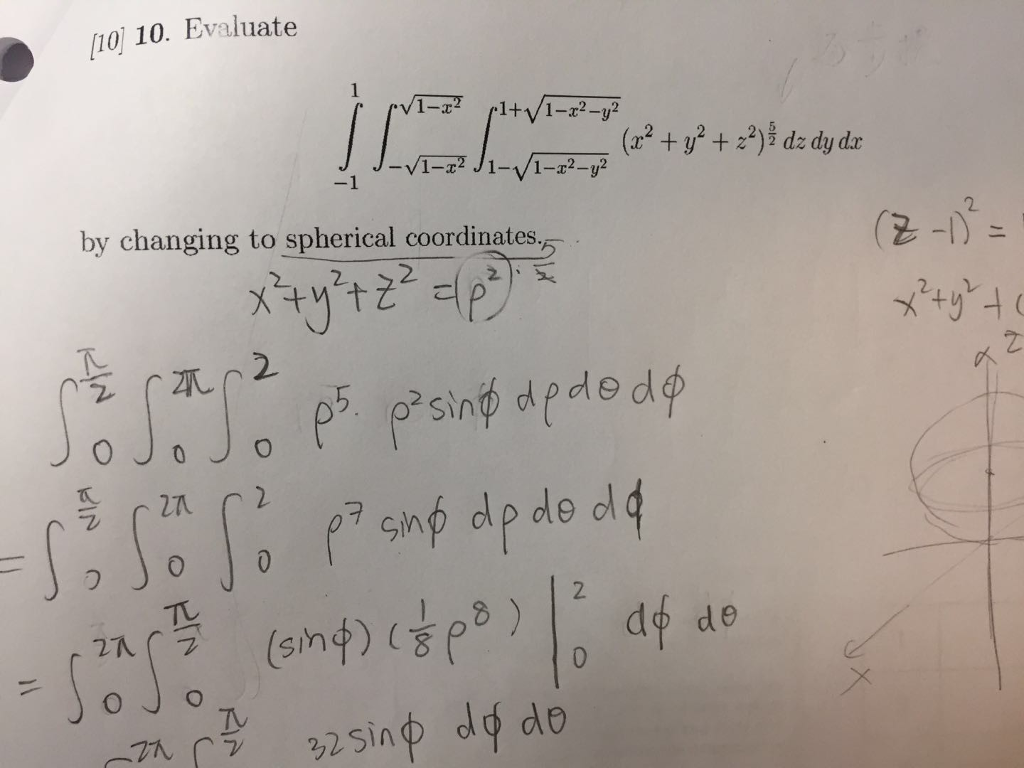 [10] 10. Evaluate
∫_{-1}^{1} ∫_{-√(1-x²)}^{√(1-x²)} ∫_{1-√(1-x²-y²)}^{1+√(1-x²-y²)} (x² + y² + z²)^{5/2} dz dy dx
by changing to spherical coordinates.
(z -1)² =
x²+y²+z² = (ρ²)·5/2
x²+y² + (
∫_0^{π/2} ∫_0^{2π} ∫_0^2 ρ⁵. ρ² sinφ dρ dθ dφ
z
= ∫_0^{π/2} ∫_0^{2π} ∫_0^2 ρ⁷ sinφ dρ dθ dφ
= ∫_0^{2π} ∫_0^{π/2} (sinφ) (1/8 ρ⁸) |_0^2 dφ dθ
x
2π π/2 32 sinφ dφ dθ